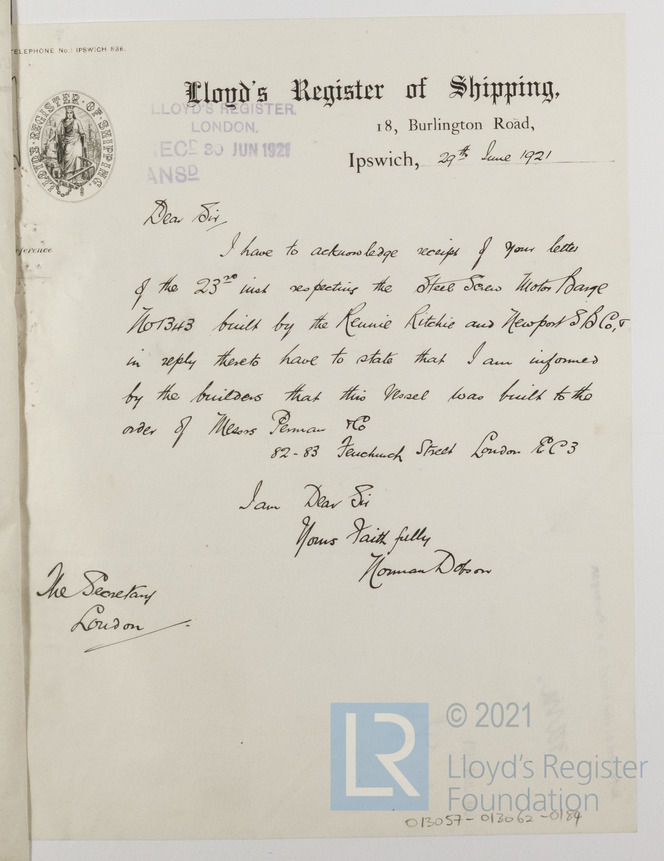 TELEPHONE No.: IPSWICH 836.
LLOYD'S REGISTER OF SHIPPING
Lloyd's Register of Shipping,
LLOYD'S REGISTER.
LONDON.
REC? 30 JUN 1921
ANSD
18, Burlington Road,
Ipswich, 29th June 1921
Dear Sir,
I have to acknowledge receipt of your letter
of the 23rd inst respecting the Steel Screw Motor Barge
No 1343 built by the Rennie Ritchie and Newport S B Co, &
in reply thereto have to state that I am informed
by the builders that this vessel was built to the
order of Messrs Perman & Co
82-83 Fenchurch Street London EC3
I am Dear Sir
Yours Faithfully
Norman Dobson
The Secretary
London
LR
© 2021
Lloyd's Register
Foundation
013057-013062-0184